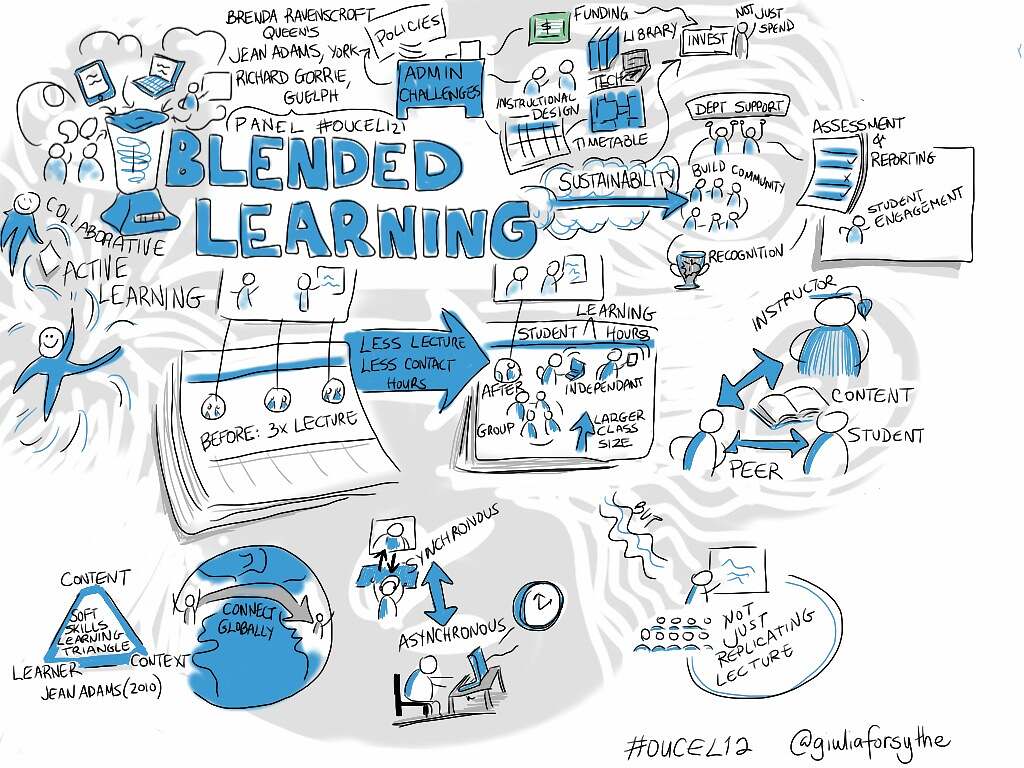 BRENDA RAVENSCROFT
QUEEN'S
JEAN ADAMS, YORK
RICHARD GORRIE,
GUELPH
PANEL #OUCEL121
POLICIES
ADMIN
CHALLENGES
FUNDING
LIBRARY
TECH
INSTRUCTIONAL
DESIGN
TIMETABLE
INVEST
NOT JUST
SPEND
BLENDED
LEARNING
SUSTAINABILITY
DEPT SUPPORT
BUILD COMMUNITY
RECOGNITION
ASSESSMENT
&
REPORTING
STUDENT
ENGAGEMENT
COLLABORATIVE
ACTIVE
LEARNING
BEFORE: 3x LECTURE
LESS LECTURE
LESS CONTACT
HOURS
LEARNING
STUDENT HOURS
AFTER
INDEPENDANT
GROUP
LARGER
CLASS
SIZE
INSTRUCTOR
CONTENT
STUDENT
PEER
CONTENT
SOFT
SKILLS
LEARNING
TRIANGLE
LEARNER
CONTEXT
JEAN ADAMS (2010)
CONNECT
GLOBALLY
SYNCHRONOUS
ASYNCHRONOUS
BUT
NOT
JUST
REPLICATING
LECTURE
#OUCEL12
@giuliaforsythe